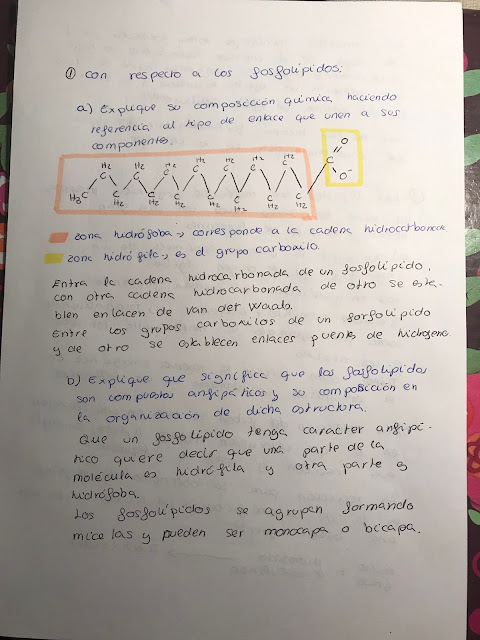 ① Con respecto a los fosfolípidos:
a) Explique su composición química haciendo
referencia al tipo de enlace que unen a sus
componentes.
H2 H2 H2 H2 H2 H2 H2 O
C C C C C C C C
H3C C C C C C C C O-
H2 H2 H2 H2 H2 H2 H2
zona hidrófoba → corresponde a la cadena hidrocarbonada
zona hidrófila → es el grupo carboxilo.
Entra la cadena hidrocarbonada de un fosfolípido,
con otra cadena hidrocarbonada de otro se esta-
blen enlacen de Van der Waals.
Entre los grupos carboxilos de un forfolípido
y de otro se establecen enlaces puentes de hidrógeno
b) Explique que significa que los fosfolípidos
son compuestos anfipáticos y su composición en
la organización de dicha estructora.
Que un fosfolípido tenga caracter anfipá-
tico quere decir que una parte de la
molécula es hidrófila y otra parte es
hidrófoba.
Los fosfolípidos se agrupan formando
micelas y pueden ser monocapa o bicapa.